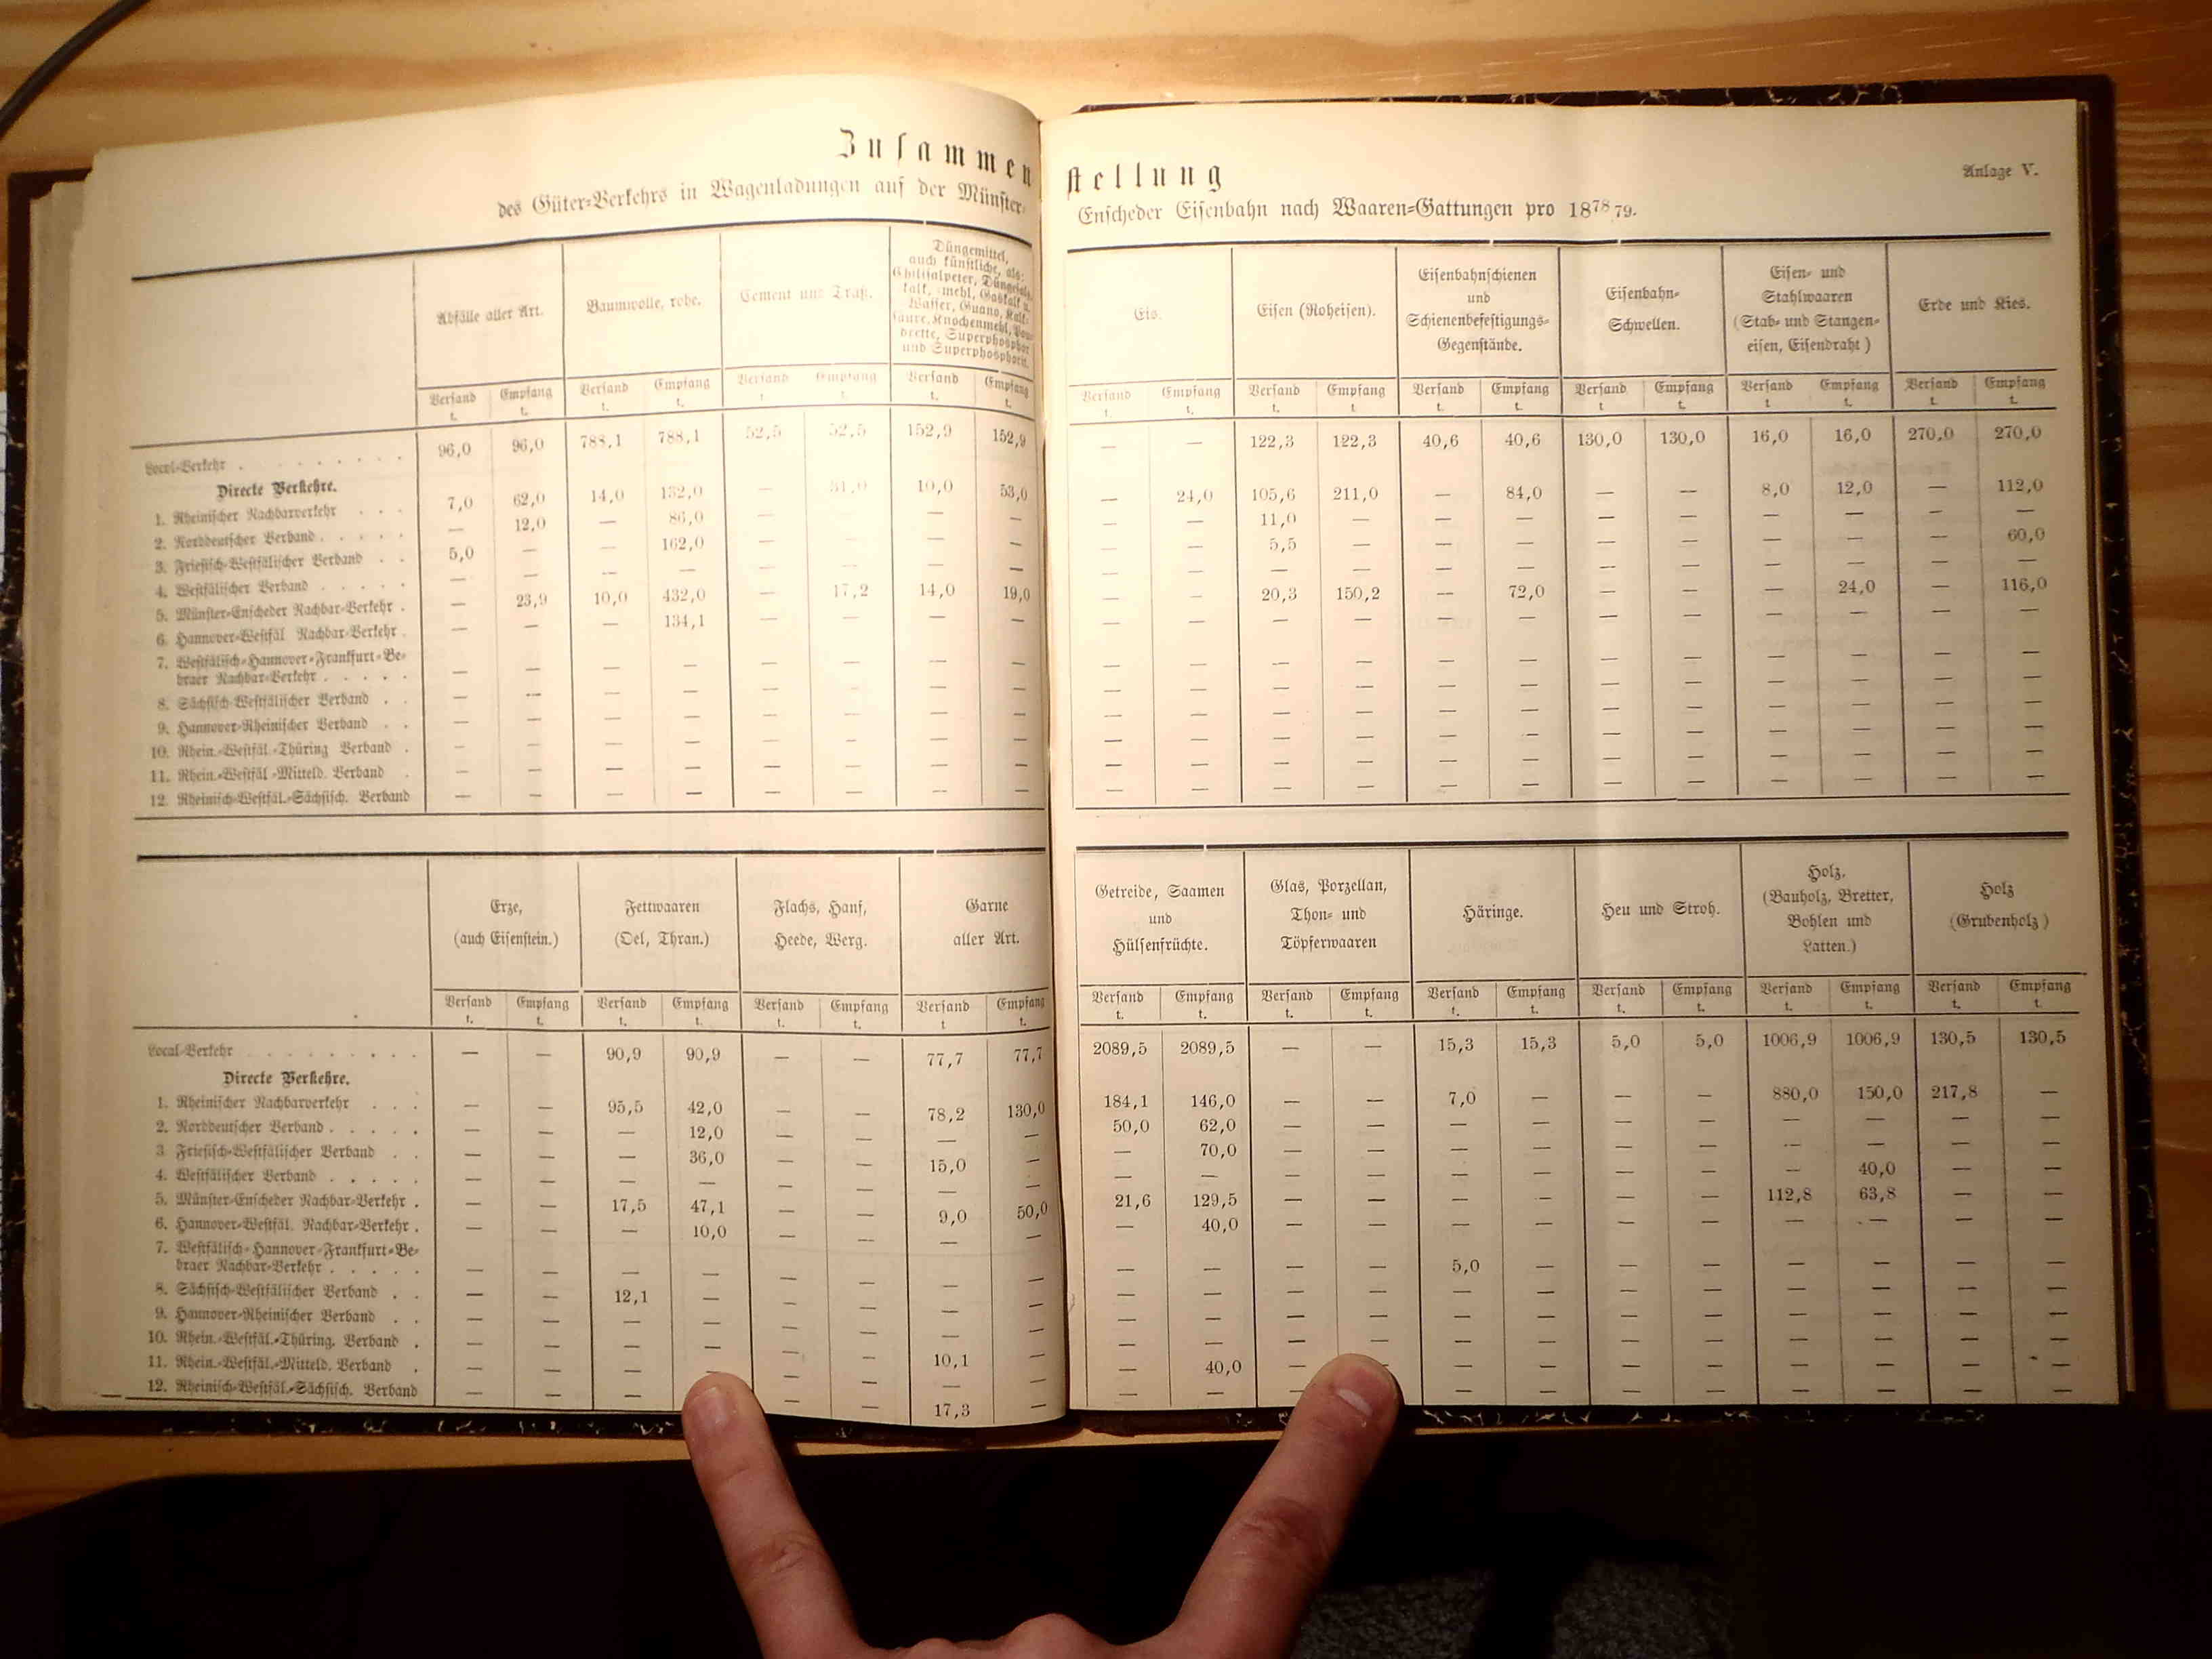 Zusammenstellung
des Güter-Verkehrs in Wagenladungen auf der Münster-Enscheder Eisenbahn nach Waaren-Gattungen pro 1878/79.
Anlage V.
Abfälle aller Art. Baumwolle, rohe. Cement und Traß. Düngemittel, auch künstliche, als: Chilisalpeter, Düngesalz, -kalk, -mehl, Gaskalk u. -Wasser, Guano, Kali-saure, Knochenmehl, Poudrette, Superphosphat und Superphosphorit. Eis. Eisen (Roheisen). Eisenbahnschienen und Schienenbefestigungs-Gegenstände. Eisenbahn-Schwellen. Eisen- und Stahlwaaren (Stab- und Stangen-eisen, Eisendraht) Erde und Kies.
Versand Empfang Versand Empfang Versand Empfang Versand Empfang Versand Empfang Versand Empfang Versand Empfang Versand Empfang Versand Empfang Versand Empfang
t. t. t. t. t. t. t. t. t. t. t. t. t. t. t. t. t. t. t. t.
Local-Verkehr . . . . . . . . 96,0 96,0 788,1 788,1 52,5 52,5 152,9 152,9 — — 122,3 122,3 40,6 40,6 130,0 130,0 16,0 16,0 270,0 270,0
Directe Verkehre.
1. Rheinischer Nachbarverkehr . . . 7,0 62,0 14,0 152,0 — 31,0 10,0 53,0 — 24,0 105,6 211,0 — 84,0 — — 8,0 12,0 — 112,0
2. Norddeutscher Verband . . . . . — 12,0 — 86,0 — — — — — — 11,0 — — — — — — — — —
3. Friesisch-Westfälischer Verband . . 5,0 — — 162,0 — — — — — — 5,5 — — — — — — — — 60,0
4. Westfälischer Verband . . . . . — — — — — — — — — — — — — — — — — — — —
5. Münster-Enscheder Nachbar-Verkehr . — 23,9 10,0 432,0 — 17,2 14,0 19,0 — — 20,3 150,2 — 72,0 — — — 24,0 — 116,0
6. Hannover-Westfäl. Nachbar-Verkehr . — — — 134,1 — — — — — — — — — — — — — — — —
7. Westfälisch-Hannover-Frankfurt-Be-
braer Nachbar-Verkehr . . . . . — — — — — — — — — — — — — — — — — — — —
8. Sächsisch-Westfälischer Verband . . — — — — — — — — — — — — — — — — — — — —
9. Hannover-Rheinischer Verband . . — — — — — — — — — — — — — — — — — — — —
10. Rhein.-Westfäl.-Thüring Verband . — — — — — — — — — — — — — — — — — — — —
11. Rhein.-Westfäl.-Mitteld. Verband . — — — — — — — — — — — — — — — — — — — —
12. Rheinisch-Westfäl.-Sächsisch. Verband — — — — — — — — — — — — — — — — — — — —
Erze, (auch Eisenstein.) Fettwaaren (Oel, Thran.) Flachs, Hanf, Heede, Werg. Garne aller Art. Getreide, Saamen und Hülsenfrüchte. Glas, Porzellan, Thon- und Töpferwaaren Häringe. Heu und Stroh. Holz, (Bauholz, Bretter, Bohlen und Latten.) Holz (Grubenholz)
Versand Empfang Versand Empfang Versand Empfang Versand Empfang Versand Empfang Versand Empfang Versand Empfang Versand Empfang Versand Empfang Versand Empfang
t. t. t. t. t. t. t t. t. t. t. t. t. t. t. t. t. t. t. t.
Local-Verkehr . . . . . . . . . — — 90,9 90,9 — — 77,7 77,7 2089,5 2089,5 — — 15,3 15,3 5,0 5,0 1006,9 1006,9 130,5 130,5
Directe Verkehre.
1. Rheinischer Nachbarverkehr . . . — — 95,5 42,0 — — 78,2 130,0 184,1 146,0 — — 7,0 — — — 880,0 150,0 217,8 —
2. Norddeutscher Verband . . . . . — — — 12,0 — — — — 50,0 62,0 — — — — — — — — — —
3 Friesisch-Westfälischer Verband . . — — — 36,0 — — 15,0 — — 70,0 — — — — — — — — — —
4. Westfälischer Verband . . . . . — — — — — — — — — — — — — — — — — 40,0 — —
5. Münster-Enscheder Nachbar-Verkehr . — — 17,5 47,1 — — 9,0 50,0 21,6 129,5 — — — — — — 112,8 63,8 — —
6. Hannover-Westfäl. Nachbar-Verkehr . — — — 10,0 — — — — — 40,0 — — — — — — — — — —
7. Westfälisch-Hannover-Frankfurt-Be-
braer Nachbar-Verkehr . . . . . — — — — — — — — — — — — 5,0 — — — — — — —
8. Sächsisch-Westfälischer Verband . . — — 12,1 — — — — — — — — — — — — — — — — —
9. Hannover-Rheinischer Verband . . — — — — — — — — — — — — — — — — — — — —
10. Rhein.-Westfäl.-Thüring. Verband . — — — — — — 10,1 — — — — — — — — — — — — —
11. Rhein.-Westfäl.-Mitteld. Verband . — — — — — — — — — 40,0 — — — — — — — — — —
12. Rheinisch-Westfäl.-Sächsisch. Verband — — — — — — 17,3 — — — — — — — — — — — —